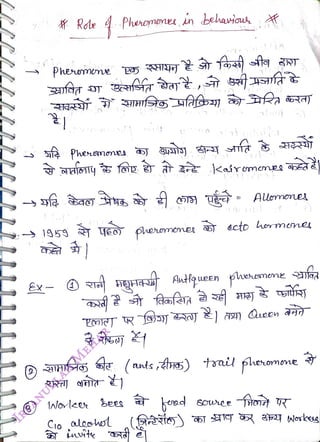 # Role of Pheromones in behaviour #
→ Pheromone एक रसायन है जो किसी जीव द्वारा
स्रावित या उत्सर्जित होता है, जो उसी प्रजाति के
सदस्यों में सामाजिक प्रतिक्रिया को प्रेरित करता
है।
→ यदि Pheromones का प्रयोग अन्य जाति के सदस्यों
से वार्तालाप के लिए हो तो इन्हे Kairomones कहते है।
→ यदि केवल प्रेषक को ही लाभ पहुँचे = Allomones
→ 1959 से पहले pheromones को ecto hormones
कहते थे।
Ex - ① रानी मधुमक्खी Antiqueen pheromone स्रावित
करती है जो विकसित हो रही मादा के कार्पोरा
एलाटा पर क्रिया करता है। तथा Queen बनने
से रोकता है।
② सामाजिक कीट (ants, दीमक) trail pheromone से
रास्ता बनाते है।
③ Worker bees में food source मिलने पर
C10 alcohol का स्राव कर अन्य workers
को invite करती है।